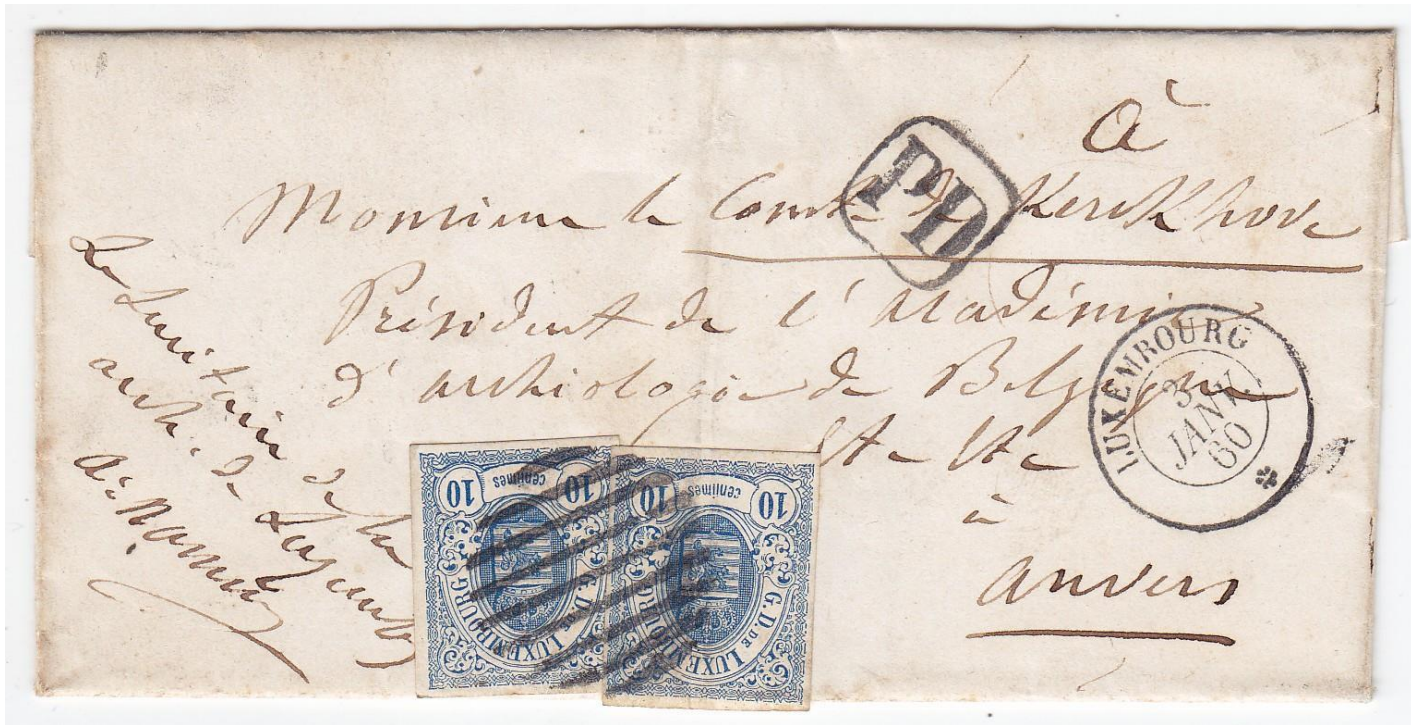 à
Monsieur le Comte de Kerckhove
PD
Président de l'Académie
d'archéologie de Belgique
à
Anvers
LUXEMBOURG
3
JANV.
60
Le Secrétaire de la
arch. de Luxembg
Namur
10 centimes 10
G. D. DE LUXEMBOURG
10 centimes 10
G. D. DE LUXEMBOURG